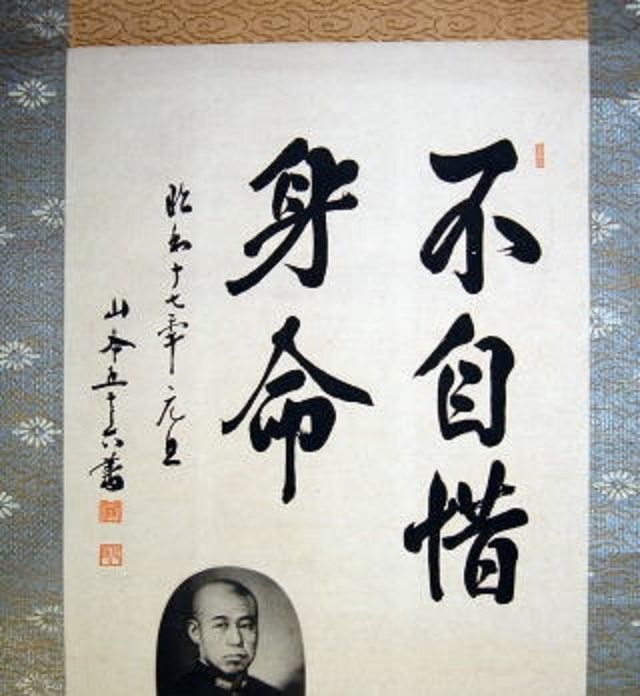 不自惜
身命
昭和十七年元旦
山本五十六書